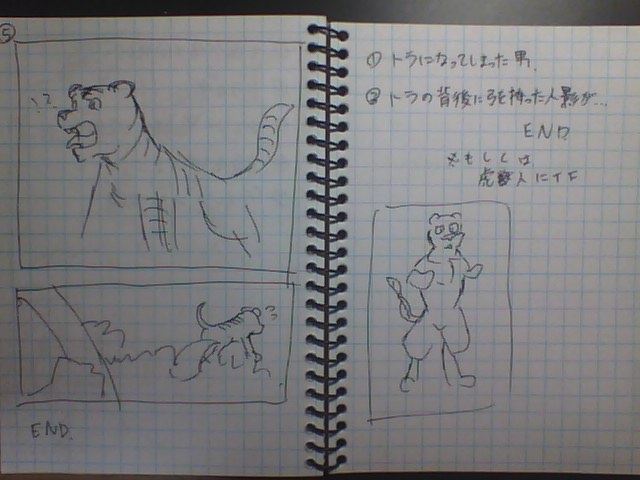 ⑤
!?
END.
① トラになってしまった男.
② トラの背後に弓を持った人影が...
END
※もしくは
虎獣人にTF